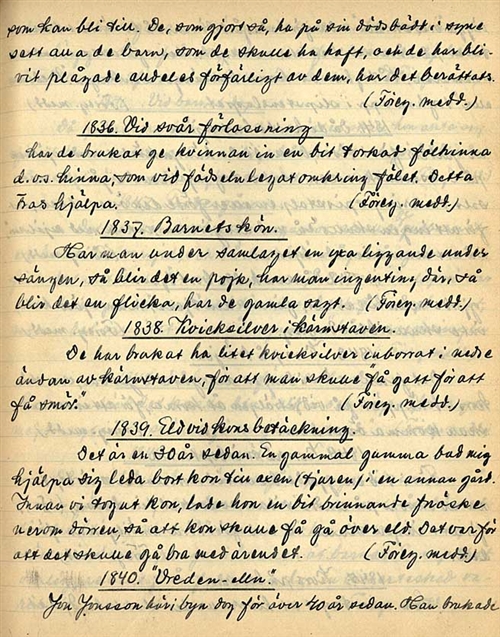 som kan bli till. De, som gjort så, ha på sin dödsbädd i syne
sett alla de barn, som de skulle ha haft, och de har bli-
vit plågade alldeles förfärligt av dem, har det berättats.
(Föreg. medd.)
1836. Vid svår förlossning
har de brukat ge kvinnan in en bit torkad fölhinna
d.v.s. hinna, som vid födseln legat omkring fölet. Detta
tros hjälpa. (Föreg. medd.)
1837. Barnets kön.
Har man under samlaget en yxa liggande under
sängen, så blir det en pojk, har man ingenting där, så
blir det en flicka, har de gamla sagt. (Föreg. medd.)
1838. Kvicksilver i kärnstaven.
De har brukat ha litet kvicksilver inborrat i nedre
ändan av kärnstaven, för att man skulle "få gott för att
få smör." (Föreg. medd.)
1839. Eld vid kons betäckning.
Det är en 30 år sedan. En gammal gumma bad mig
hjälpa sig leda bort kon till oxen (tjuren) i en annan gård.
Innan vi togo ut kon, lade hon en bit brinnande fnöske
nerom dörren så att kon skulle få gå över eld. Det var för
att det skulle gå bra med ärendet. (Föreg. medd.)
1840. "Vreden-elln".
Jon Jonsson här i byn dog för över 40 år sedan. Han brukade